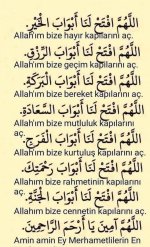 اَللّٰهُمَّ افْتَحْ لَنَا أَبْوَابَ الْخَيْرِ.
Allah'ım bize hayır kapılarını aç.
اَللّٰهُمَّ افْتَحْ لَنَا أَبْوَابَ الرِّزْقِ.
Allah'ım bize geçim kapılarını aç.
اَللّٰهُمَّ افْتَحْ لَنَا أَبْوَابَ الْبَرَكَةِ.
Allah'ım bize bereket kapılarını aç.
اَللّٰهُمَّ افْتَحْ لَنَا أَبْوَابَ السَّعَادَةِ.
Allah'ım bize mutluluk kapılarını
aç.
اَللّٰهُمَّ افْتَحْ لَنَا أَبْوَابَ الْفَرَجِ.
Allah'ım bize kurtuluş kapılarını
aç.
اَللّٰهُمَّ افْتَحْ لَنَا أَبْوَابَ رَحْمَتِكَ.
Allahım bize rahmetinin kapılarını
aç.
اَللّٰهُمَّ افْتَحْ لَنَا أَبْوَابَ الْجَنَّةِ.
Allahım bize cennetin kapılarını aç.
اَللّٰهُمَّ آمِينَ يَا أَرْحَمَ الرَّاحِمِينَ.
Amin amin Ey Merhametlilerin En